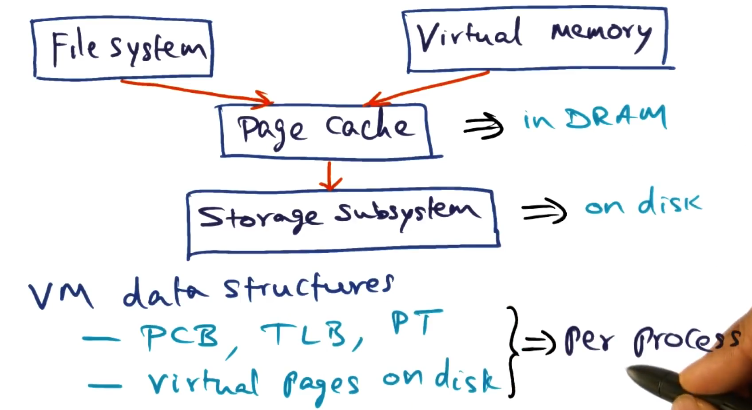 File system
Virtual memory
Page Cache ⇒ in DRAM
Storage Subsystem ⇒ on disk
VM data structures
— PCB, TLB, PT
— Virtual pages on disk } ⇒ per process